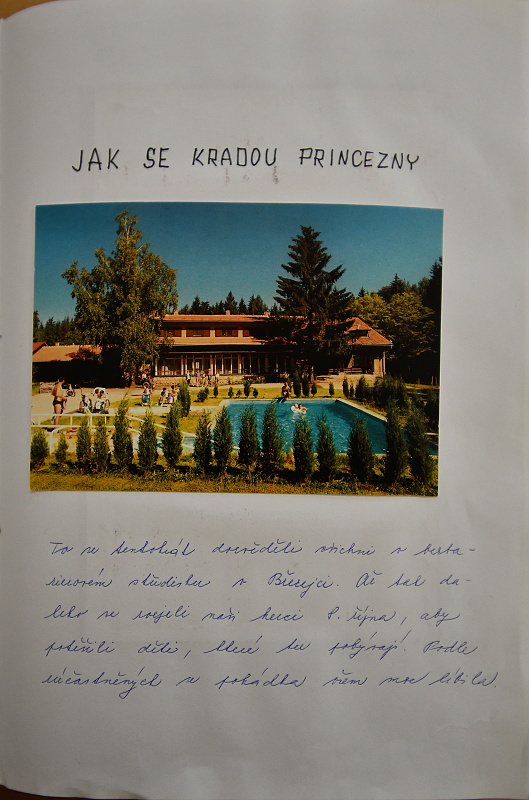 JAK SE KRADOU PRINCEZNY
To se tentokrát dověděli všichni v berta-
rinovém středisku v Březejci. Až tak da-
leko se rozjeli naši herci 8. října, aby
potěšili děti, které tu pobývají. Podle
zúčastněných se pohádka všem moc líbila.